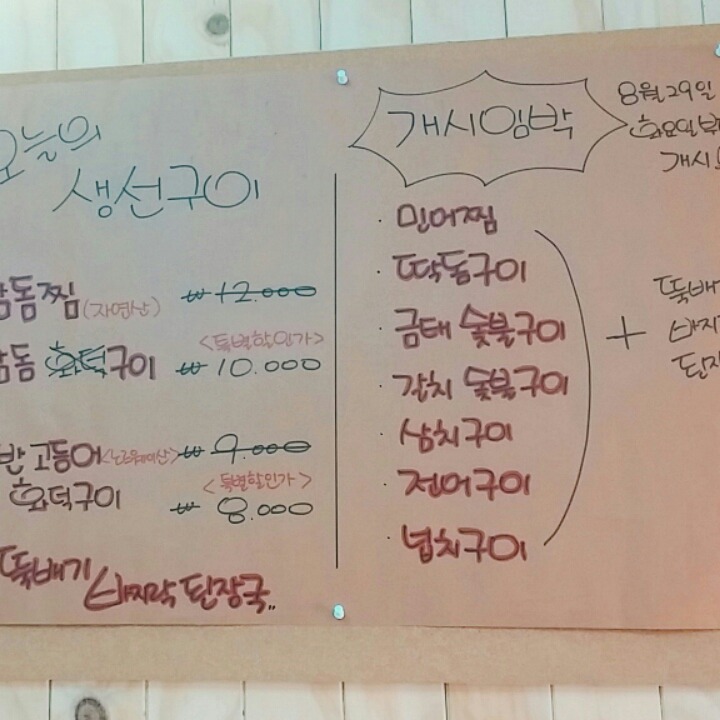 오늘의
생선구이
참돔찜 (자연산) ₩12.000
<특별할인가>
참돔 화덕구이 ₩10.000
반 고등어 <노르웨이산> ₩9.000
<특별할인가>
화덕구이 ₩8.000
뚝배기 바지락 된장국..
개시임박
8월29일
화요일부
개시
· 민어찜
· 딱돔구이
· 금태 숯불구이
· 갈치 숯불구이
· 삼치구이
· 전어구이
· 넙치구이
+
뚝배
바지
된장